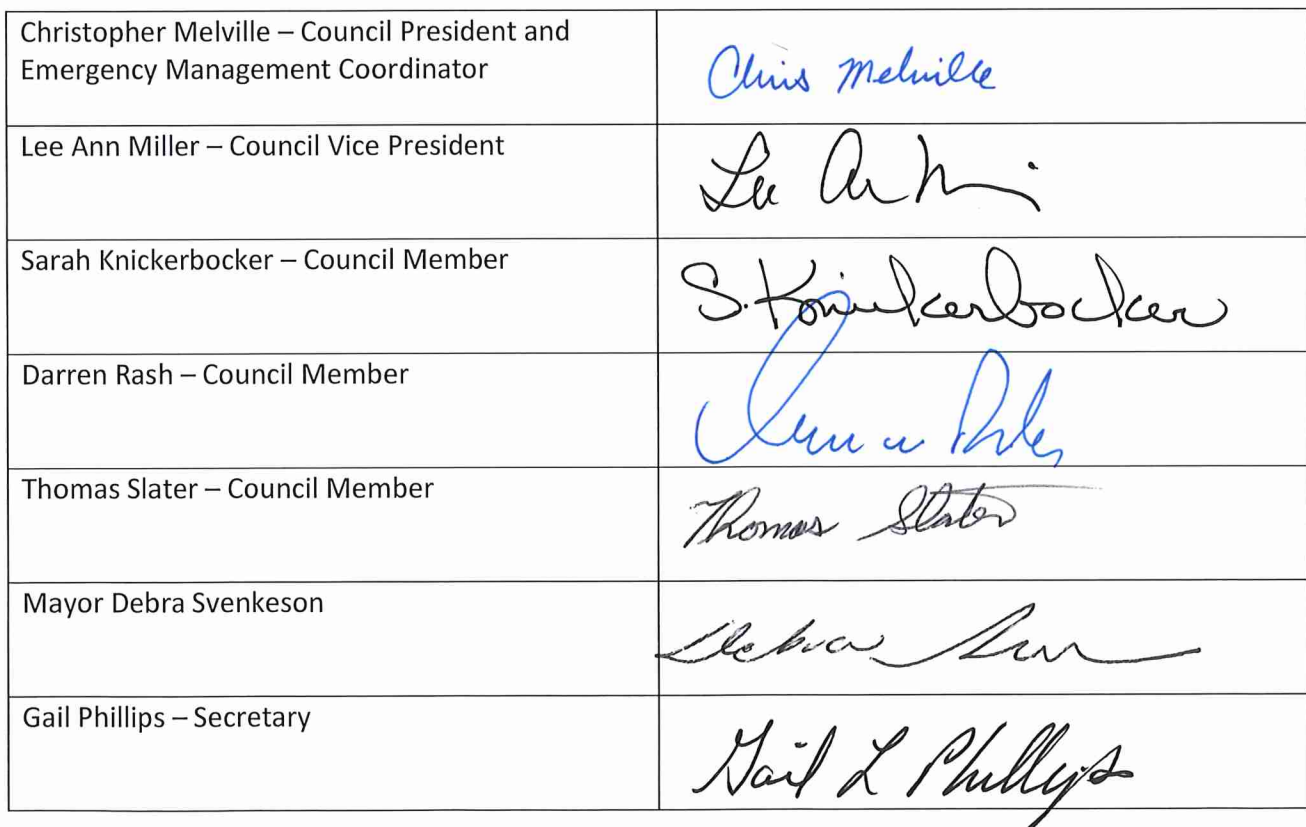 Christopher Melville – Council President and
Emergency Management Coordinator
Chris Melville
Lee Ann Miller – Council Vice President
Lee Ann
Sarah Knickerbocker – Council Member
S. Knickerbocker
Darren Rash – Council Member
Thomas Slater – Council Member
Thomas Slater
Mayor Debra Svenkeson
Debra
Gail Phillips – Secretary
Gail L Phillips